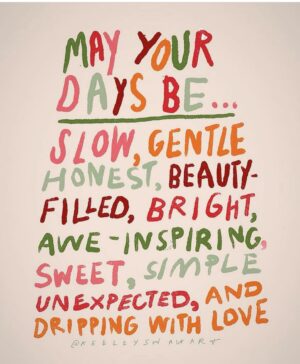 MAY YOUR
DAYS BE...
SLOW, GENTLE
HONEST, BEAUTY-
FILLED, BRIGHT,
AWE-INSPIRING,
SWEET, SIMPLE
UNEXPECTED, AND
DRIPPING WITH LOVE